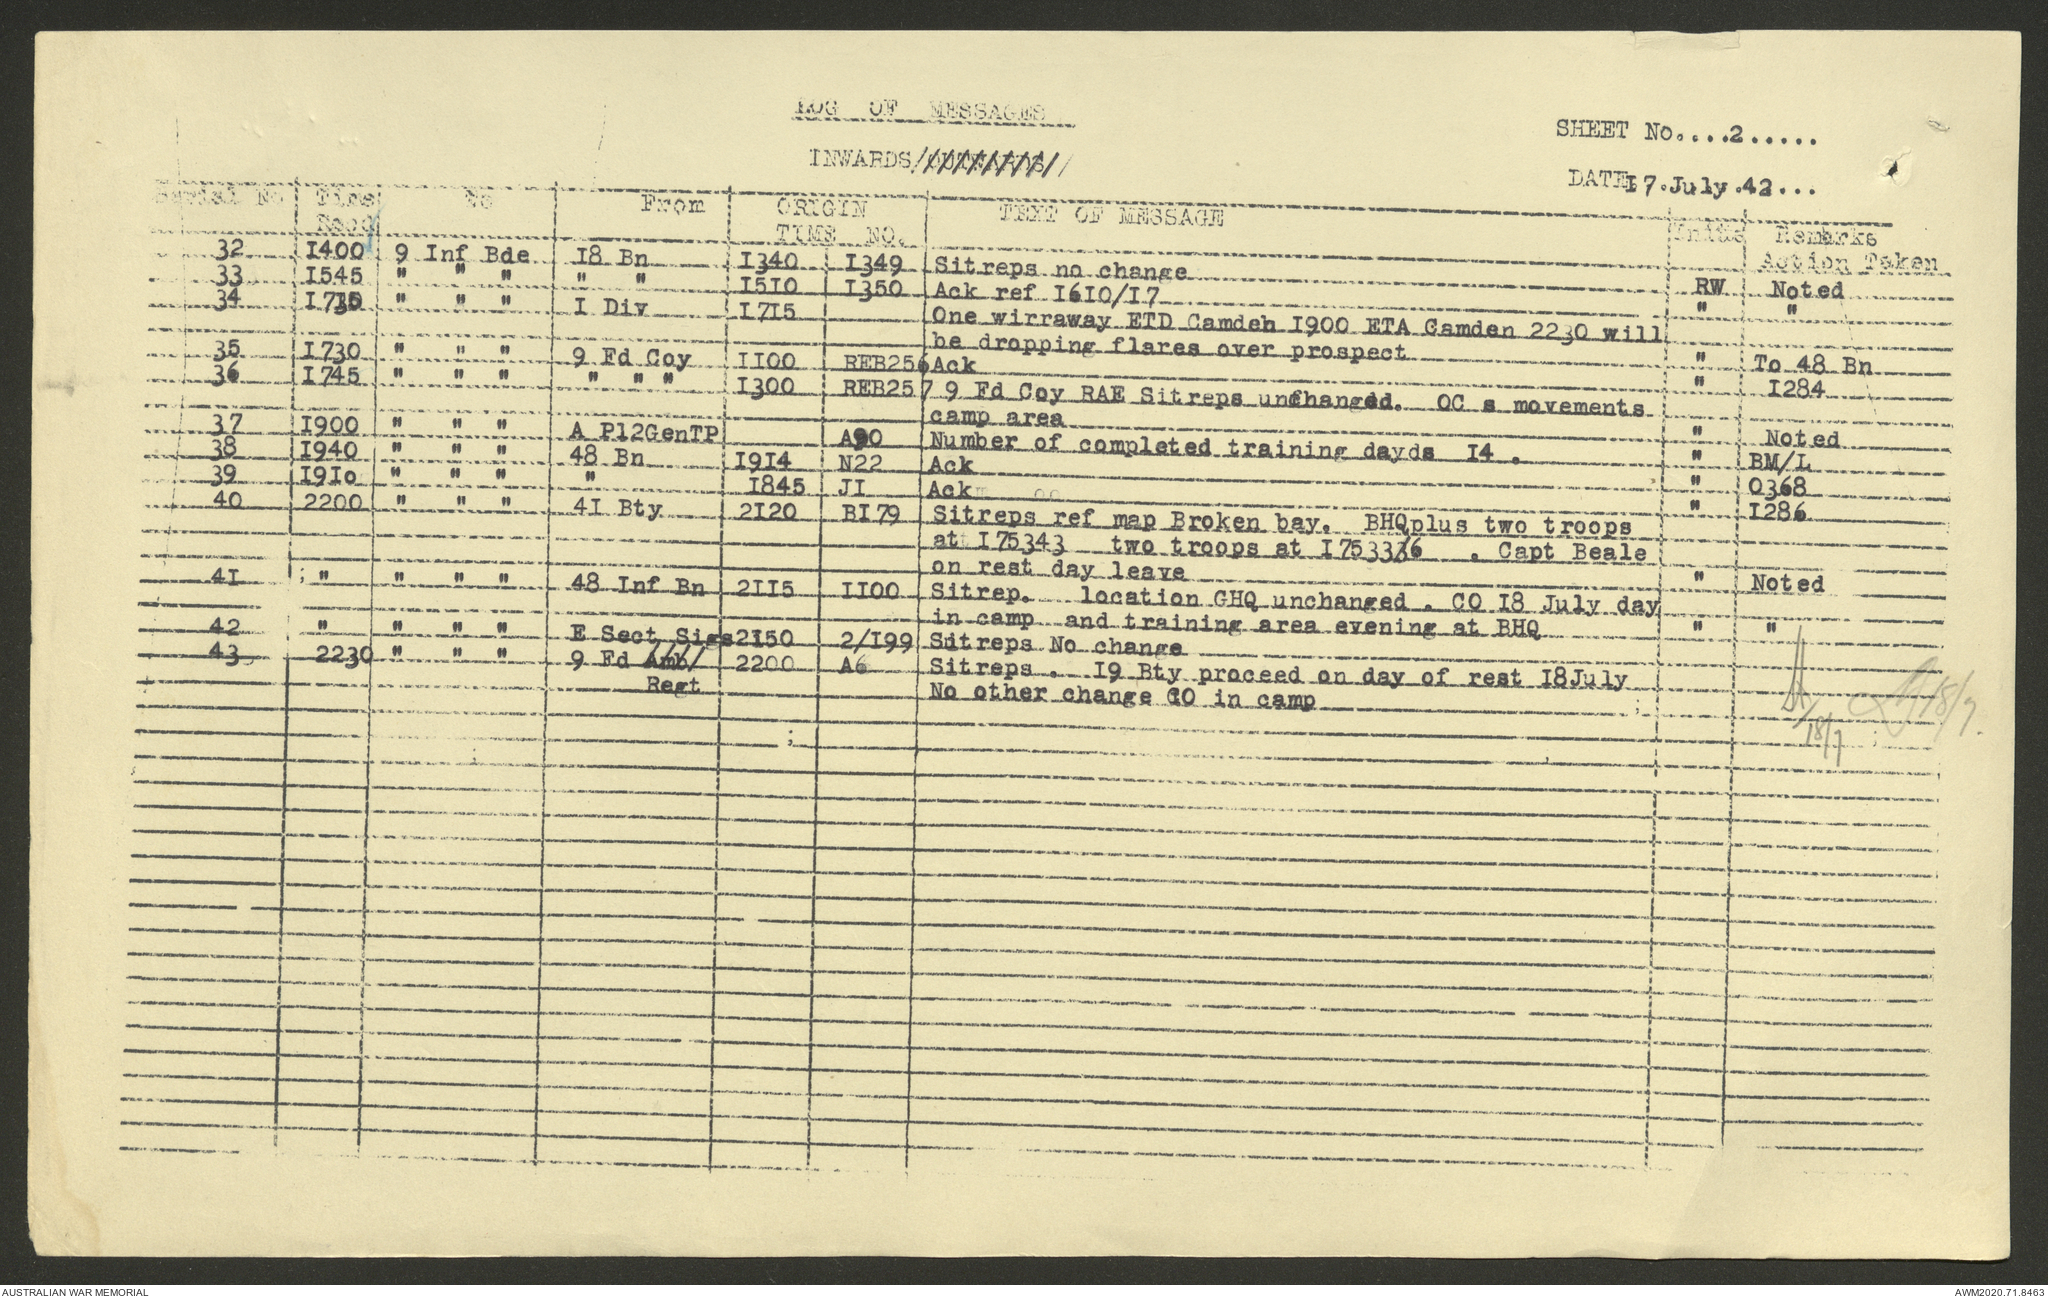 LOG OF MESSAGES
INWARDS/
SHEET No....2.....
DATE 17.July.42...
Serial No Time To From ORIGIN TEXT OF MESSAGE Initls Remarks
Recd TIME NO. Action Taken
32 1400 9 Inf Bde 18 Bn 1340 1349 Sitreps no change RW Noted
33 1545 " " " " " 1510 1350 Ack ref 1610/17 " "
34 1730 " " " 1 Div 1715 One wirraway ETD Camden 1900 ETA Camden 2230 will
be dropping flares over prospect " To 48 Bn
35 1730 " " " 9 Fd Coy 1100 REB256 Ack " 1284
36 1745 " " " " " " 1300 REB257 9 Fd Coy RAE Sitreps unchanged. OC s movements
camp area " Noted
37 1900 " " " A Pl2GenTP A90 Number of completed training dayds 14 . " BM/L
38 1940 " " " 48 Bn 1914 N22 Ack " 0368
39 1910 " " " " 1845 J1 Ack " 1286
40 2200 " " " 41 Bty 2120 B179 Sitreps ref map Broken bay. BHQplus two troops
at 175343 two troops at 175336 . Capt Beale
on rest day leave " Noted
41 " " " " 48 Inf Bn 2115 1100 Sitrep. location GHQ unchanged . CO 18 July day
in camp and training area evening at BHQ " "
42 " " " " E Sect Sigs 2150 2/199 Sitreps No change
43 2230 " " " 9 Fd Amb 2200 A6 Sitreps . 19 Bty proceed on day of rest 18July
Regt No other change CO in camp
18/7 18/7.
AUSTRALIAN WAR MEMORIAL
AWM2020.71.8463